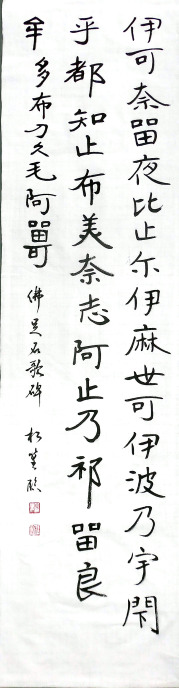 伊可奈留夜比止尓伊麻世可伊波乃宇閇
乎都知止布美奈志阿止乃祁留良
牟多布刀久毛阿留可
佛足石歌碑 臨